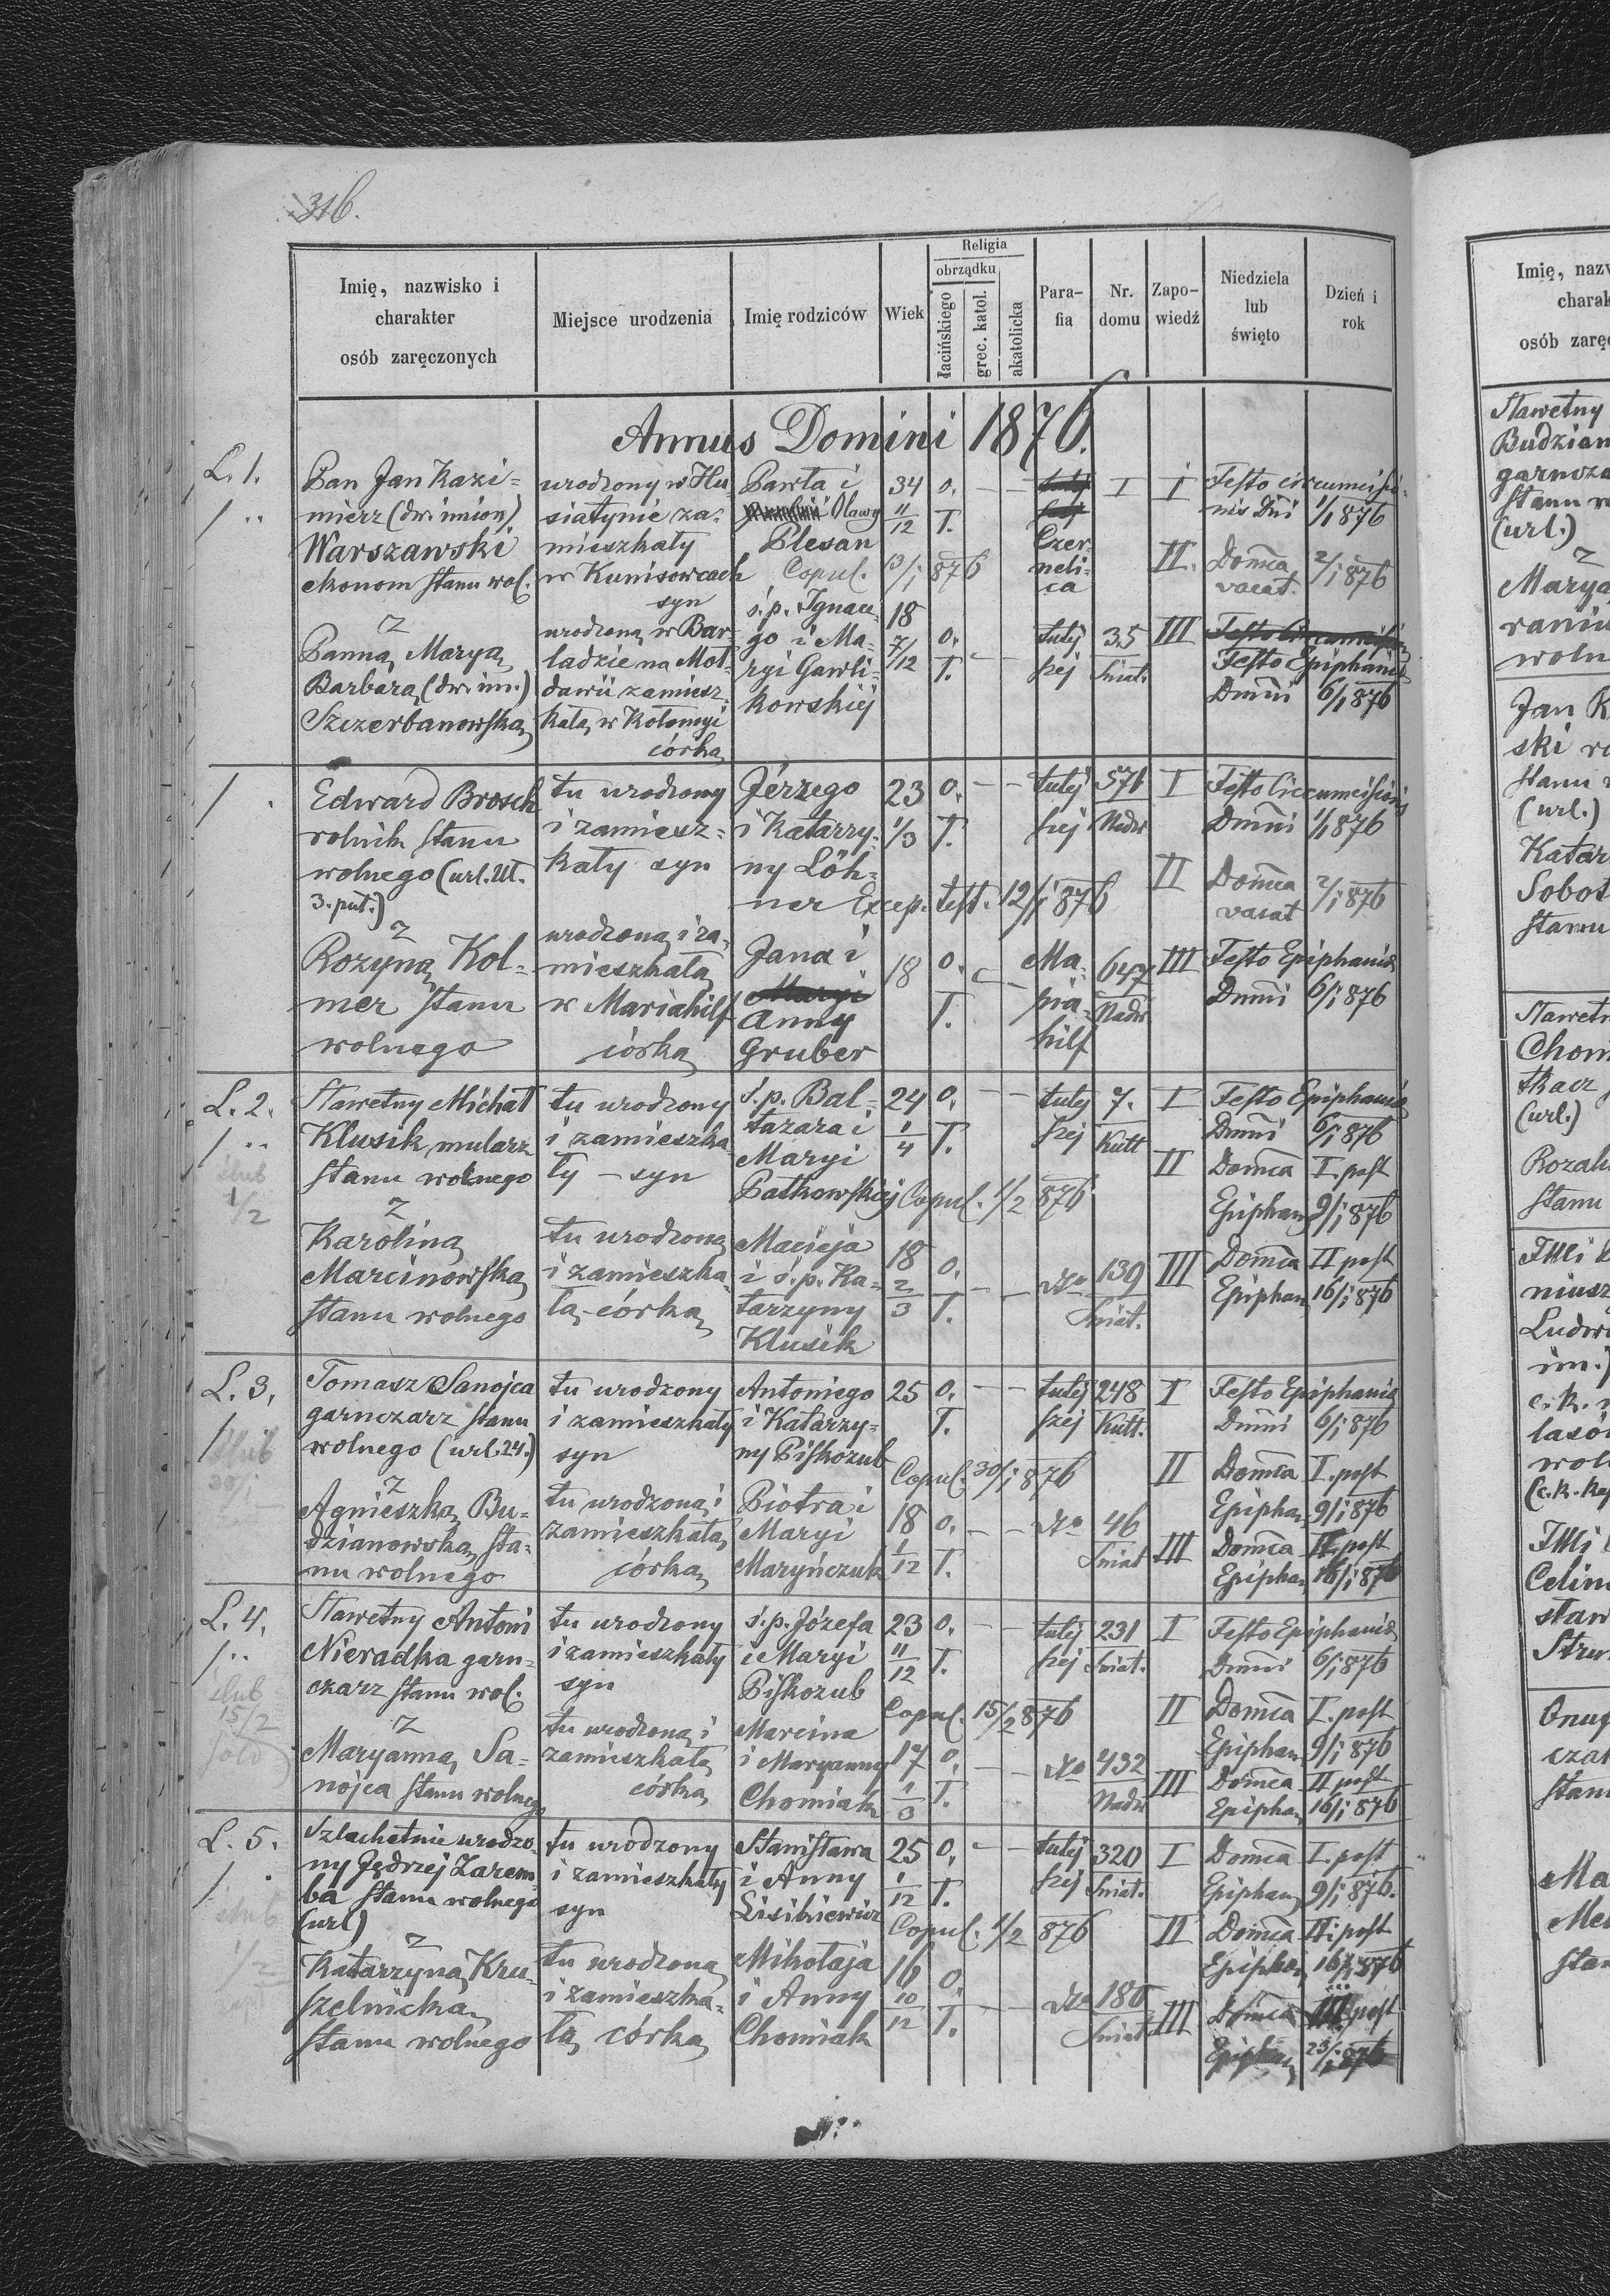 316.
Imię, nazwisko i
charakter
osób zaręczonych
Miejsce urodzenia
Imię rodziców
Wiek
Religia
obrządku
łacińskiego
grec. katol.
akatolicka
Para-
fia
Nr.
domu
Zapo-
wiedź
Niedziela
lub
święto
Dzień i
rok
Annus Domini 1876.
L. 1.
Pan Jan Kazi-
mierz (dw. imion)
Warszawski
ekonom stanu wol.
z
Panną Maryą
Barbarą (dw. im.)
Szczerbanowską
urodzony w Hu
siatynie za-
mieszkały
w Kunisowcach
syn
urodzona w Bar-
ladzie na Moł-
dawii zamiesz-
kała w Kołomyi
córka
Pawła i
Olawy
Plesan
Copul. 13/1 876
ś. p. Ignace
go i Ma-
ryi Gawli-
kowskiej
34 11/12
18 7/12
o. ł.
o. ł.
Czer-
neli-
ca
tutej
szej
I
35
Śniat.
I Festo circumcisio-
nis Dni 1/1 876
II. Domca
vacat. 2/1 876
III Festo Circumcisio
Festo Epiphania
Dmni 6/1 876
Edward Brosch
rolnik stanu
wolnego (url. Ut.
3. put.)
z
Rozyną Kol-
mer stanu
wolnego
tu urodzony
i zamiesz-
kały syn
urodzona i za-
mieszkała
w Mariahilf
córka
Jérzego
i Katarzy-
ny Löh-
ner Excep. test. 12/1 876
Jana i
Maryi
Anny
Gruber
23 1/3
18
o. ł.
o. ł.
tutej
szej
Ma-
ria-
hilf
576
Nadw
647
Nadw
I Festo Circumcisionis
Dmni 1/1 876
II Domca
vacat 2/1 876
III Festo Epiphania
Dmni 6/1 876
L. 2.
ślub
1/2
Sławetny Michał
Klusik mularz
stanu wolnego
z
Karoliną
Marcinowską
stanu wolnego
tu urodzony
i zamieszka
ły – syn
tu urodzona
i zamieszka
ła – córka
ś. p. Bal-
tazara i
Maryi
Patkowskiej Copul. 1/2 876
Macieja
i ś. p. Ka-
tarzyny
Klusik
24 1/4
18 2/3
o. ł.
o. ł.
tutej
szej
7.
Kutt
139
Śniat.
I Festo Epiphania
Dmni 6/1 876
II Domca I. post
Epiphan 9/1 876
III Domca II post
Epiphan 16/1 876
L. 3.
ślub
30/1
Tomasz Sanojca
garnczarz stanu
wolnego (url. 24.)
z
Agnieszką Bu-
dzianowską sta-
nu wolnego
tu urodzony
i zamieszkały
syn
tu urodzona i
zamieszkała
córka
Antoniego
i Katarzy-
ny Piskozub
Copul. 30/1 876
Piotra i
Maryi
Maryńczuk
25
18 1/12
o. ł.
o. ł.
tutej
szej
248
Kutt.
46
Śniat
I Festo Epiphania
Dmni 6/1 876
II Domca I. post
Epiphan 9/1 876
III Domca II. post
Epiphan 16/1 876
L. 4.
ślub
15/2
Sławetny Antoni
Nieradka garn-
czarz stanu wol.
z
Maryanną Sa-
nojca stanu wolnego
tu urodzony
i zamieszkały
syn
tu urodzona i
zamieszkała
córka
ś. p. Józefa
i Maryi
Piskozub
Copul. 15/2 876
Marcina
i Maryanny
Chomiak
23 11/12
17 1/3
o. ł.
o. ł.
tutej
szej
231
Śniat.
432
Nadw
I Festo Epiphania
Dmni 6/1 876
II Domca I. post
Epiphan 9/1 876
III Domca II post
Epiphan 16/1 876
L. 5.
ślub
1/2
Szlachetnie urodzo-
ny Jędrzej Zarem-
ba stanu wolnego
(url)
z
Katarzyną Kru-
szelnicką
stanu wolnego
tu urodzony
i zamieszkały
syn
tu urodzona
i zamieszka-
ła córka
Stanisława
i Anny
Lisikiewicz
Copul. 1/2 876
Mikołaja
i Anny
Chomiak
25 1/12
16 10/12
o. ł.
o. ł.
tutej
szej
320
Śniat.
180
Śniat
I Domca I. post
Epiphan 9/1 876.
II Domca II. post
Epiphan 16/1 876
III Domca III post
Epiphan 23/1 876
Imię, nazw
charak
osób zaręc
Sławetny
Budzian
garncza
stanu w
(url.)
z
Marya
raniu
woln
Jan K
ski ro
stanu
(url.)
Katar
Sobot
stanu
Sławetn
Chom
tkacz
(url.)
Rozali
stanu
niusz
Ludw
im.)
c. k.
lasó
wol
(c. k. kap
Celin
staw
Stru
Onuf
czar
stan
Ma
Me
stan